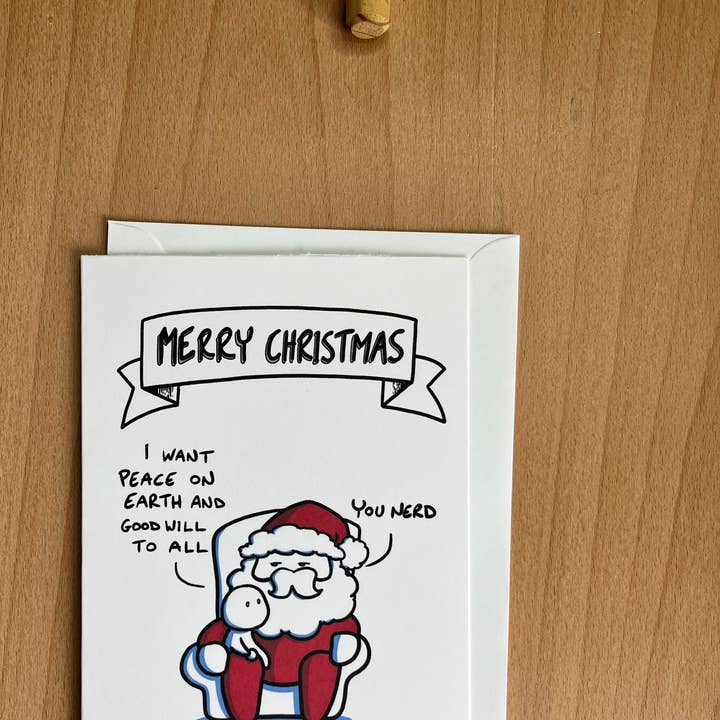 MERRY CHRISTMAS
I WANT
PEACE ON
EARTH AND
GOOD WILL
TO ALL
YOU NERD